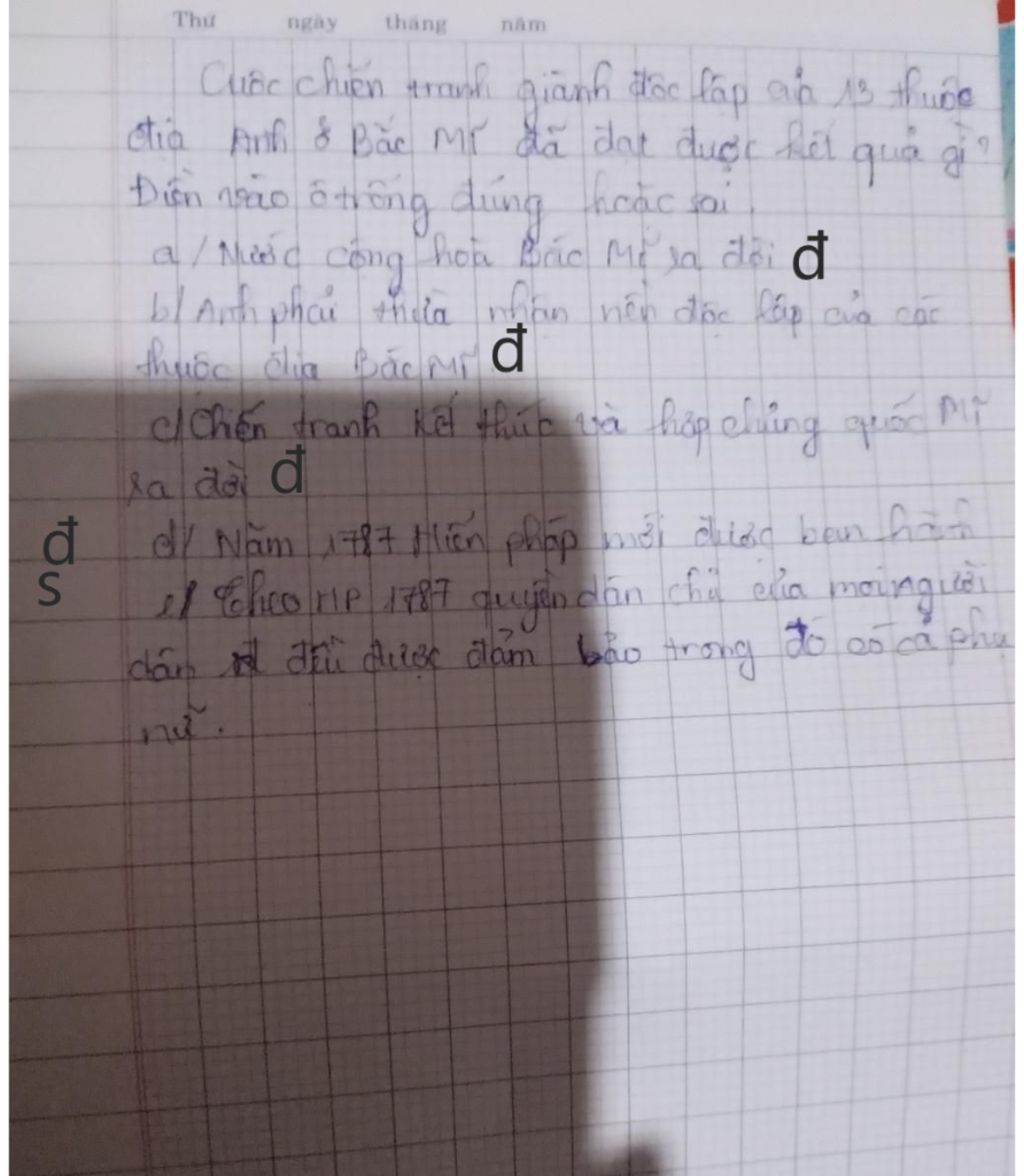 Thứ ngày tháng năm
Cuộc chiến tranh giành độc lập của 13 thuộc
địa Anh ở Bắc Mĩ đã đạt được kết quả gì?
Điền vào ô trống đúng hoặc sai.
a/ Nước cộng hoà Bắc Mĩ ra đời đ
b/ Anh phải thừa nhận nền độc lập của các
thuộc địa Bắc Mĩ đ
c/ Chiến tranh kết thúc và hợp chủng quốc Mĩ
ra đời đ
đ d/ Năm 1787 Hiến pháp mới được ban hành
s e/ Theo HP 1787 quyền dân chủ của mọi người
dân đều được đảm bảo trong đó có cả phụ
nữ.